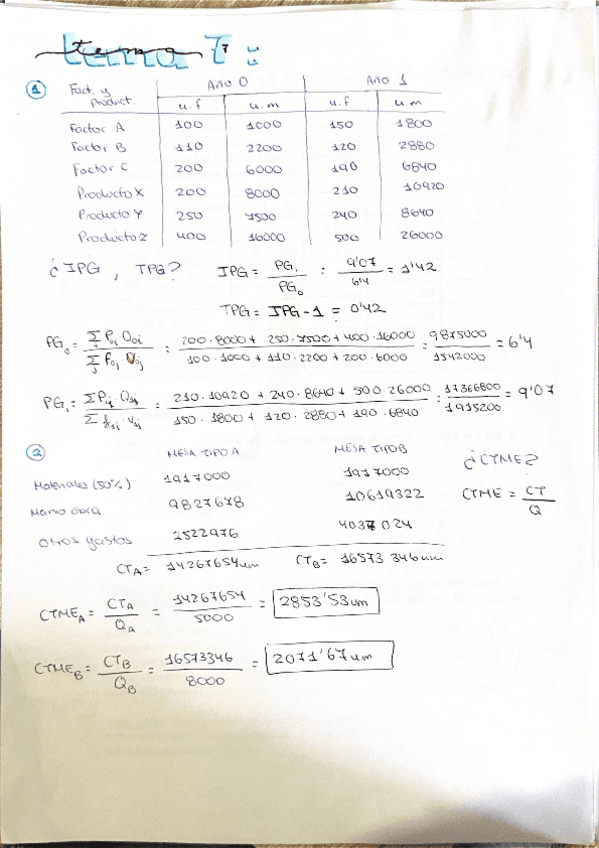 tema 7:
1 Fact. y Product. Año 0 Año 1
u.f u.m u.f u.m
Factor A 100 1000 150 1800
Factor B 110 2200 120 2880
Factor C 200 6000 190 6840
Producto X 200 8000 210 10920
Producto Y 250 7500 240 8640
Producto Z 400 16000 500 26000
¿IPG, TPG? IPG = PG₁/PG₀ : 9'07/6'4 = 1'42
TPG = IPG - 1 = 0'42
PG₀ = : 200·8000 + 250·7500 + 400·16000 / 100·1000 + 110·2200 + 200·6000 : 9875000/1542000 = 6'4
PG₁ = : 210·10920 + 240·8640 + 500·26000 / 150·1800 + 120·2880 + 190·6840 : 17366800/1915200 = 9'07
2 MESA TIPO A MESA TIPO B ¿CTME?
Materiales (50%) 1917000 1917000 CTME = CT/Q
Mano obra 9827678 10619322
Otros gastos 2522976 4037024
CTA = 14267654 um CTB = 16573346 um
CTMEA = CTA/QA = 14267654/5000 = 2853'53 um
CTMEB = CTB/QB = 16573346/8000 = 2071'67 um